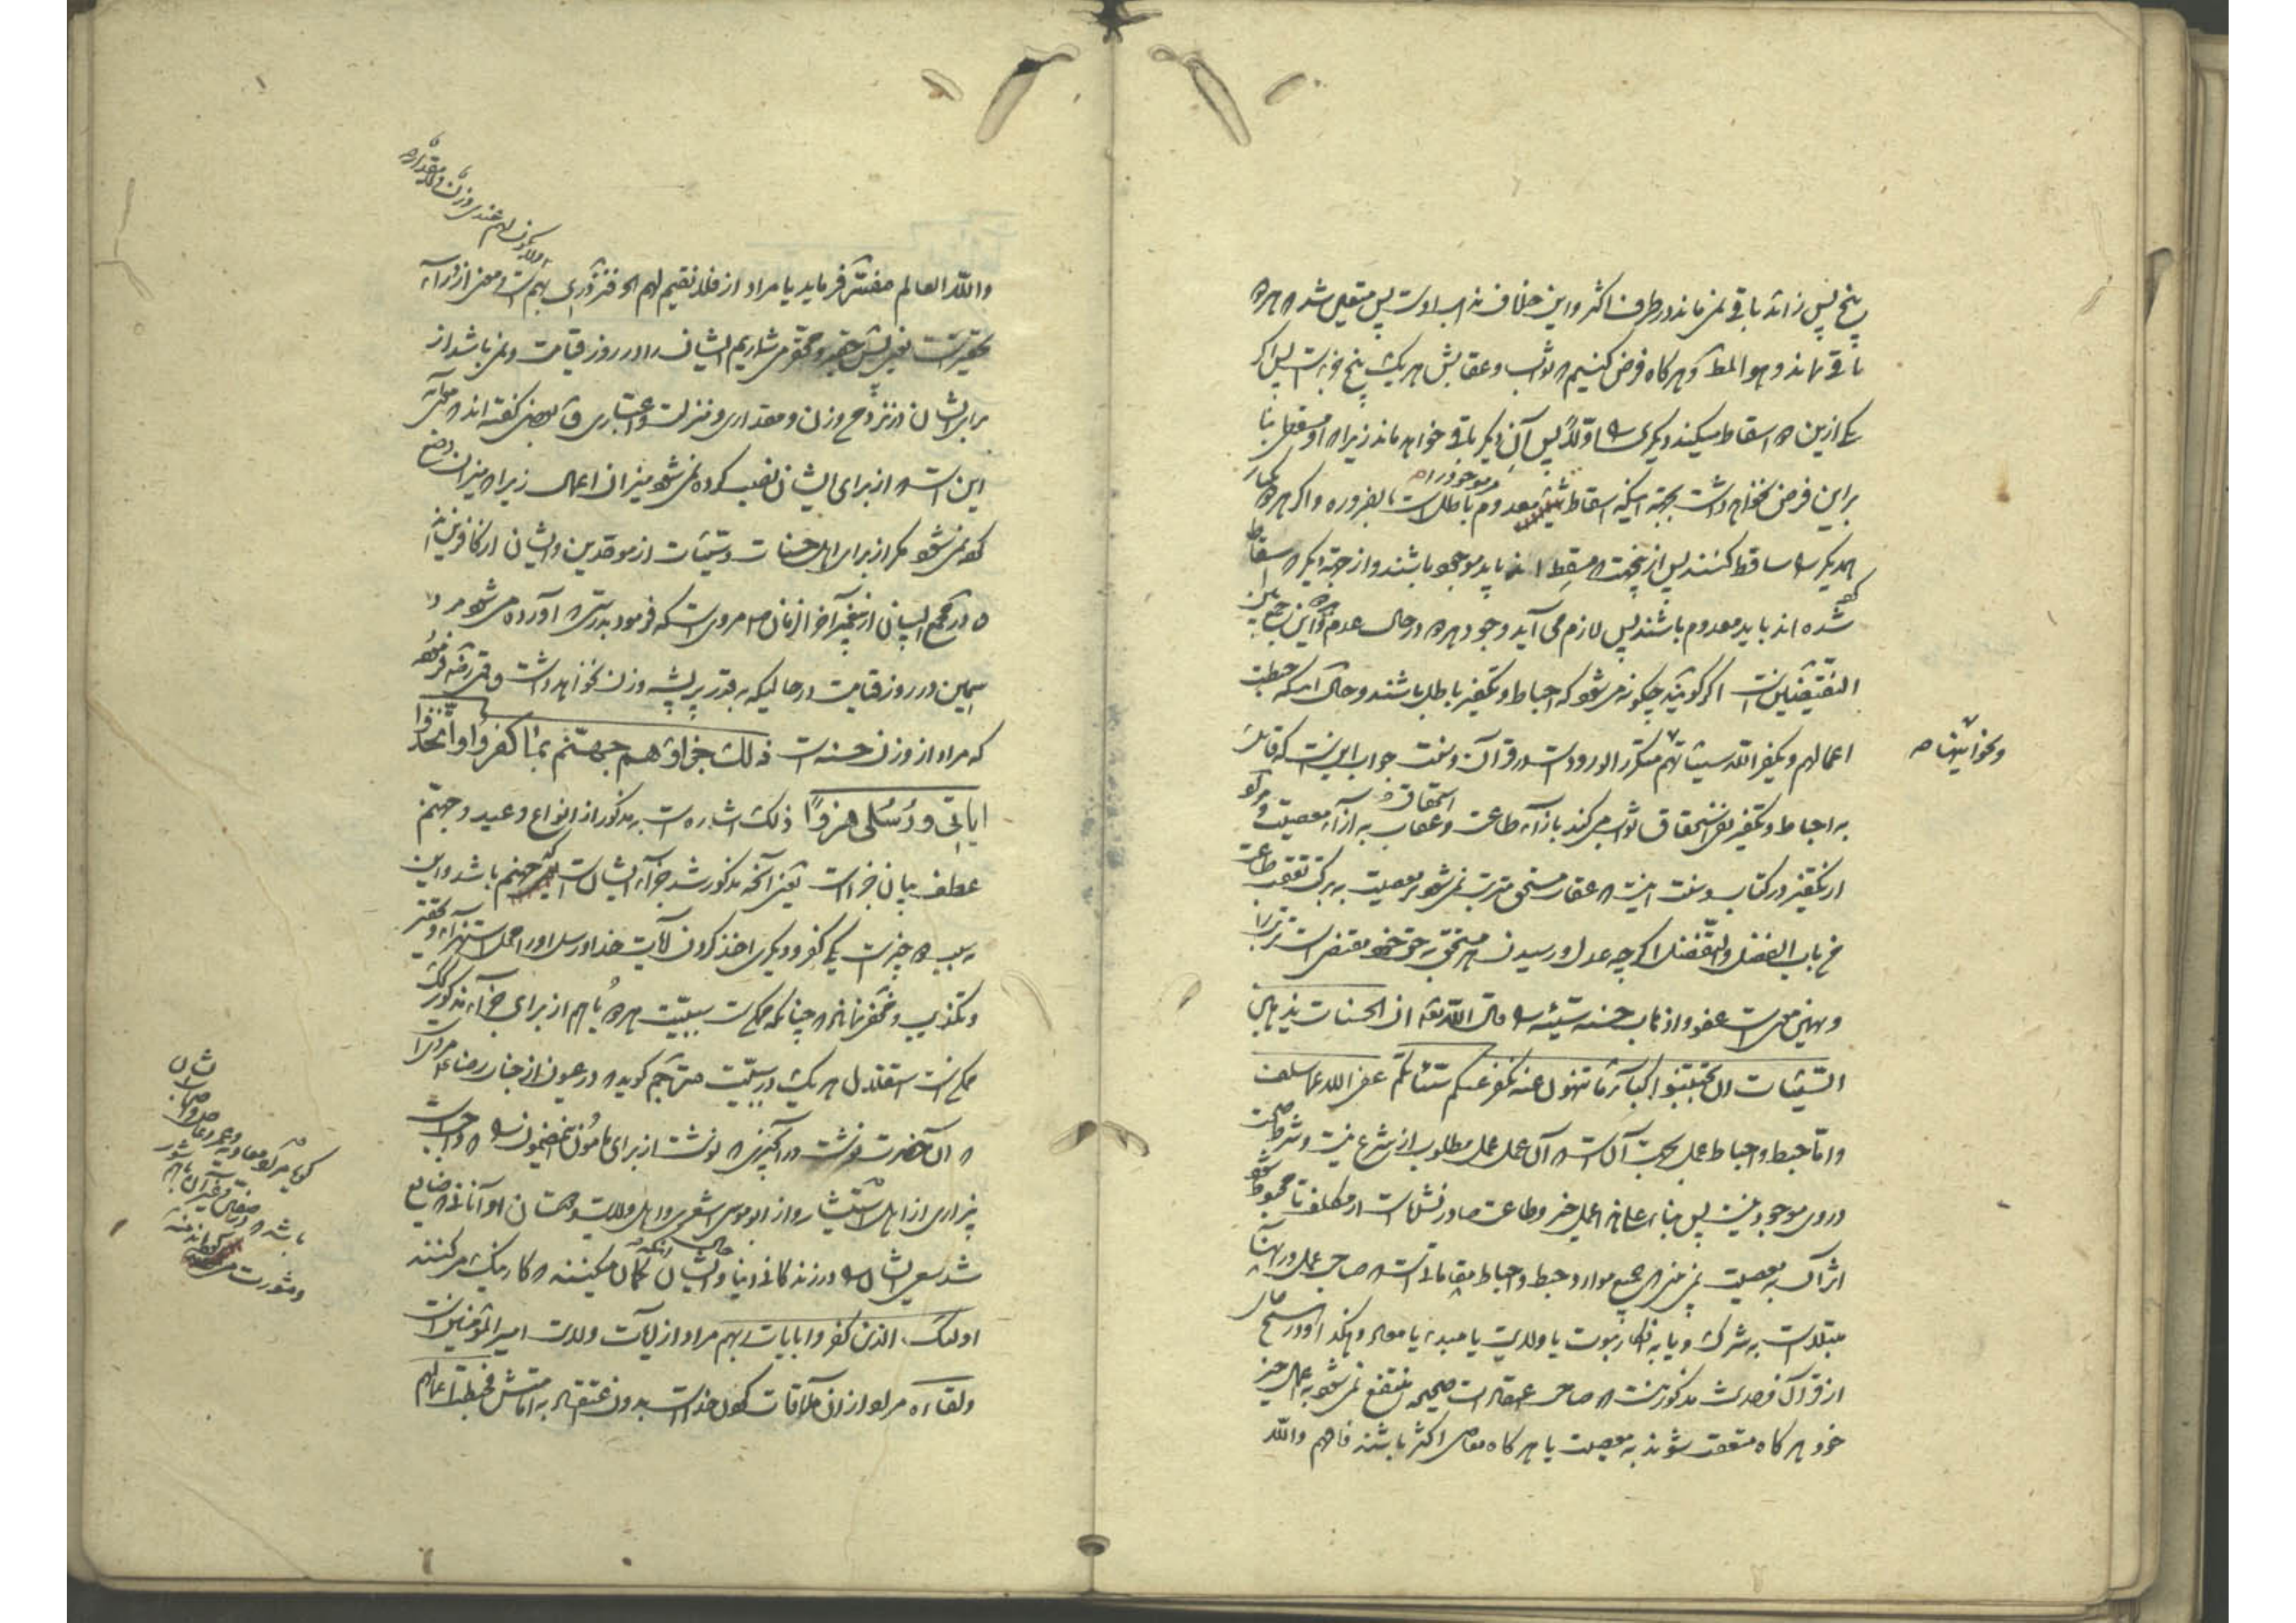 پنج پس زائد باقی نمی ماند در طرف اکثر و این خلاف مذهب اوست پس متعین شد که هر دو
باقی ماند و هو المط و هر کاه فرض کنیم که ثواب و عقابش هر یک پنج جزء است پس اکر
یکی ازین دو اسقاط میکند دیکری را اولا پس آن دیکر باقی خواهد ماند زیرا که او مسقطی بنا
بر این فرض نخواهد داشت بجهة اینکه اسقاط معدوم موجود را باطل است بالضروره و اکر هر دو
همدیکر را ساقط کنند پس از جهت که مسقط اند باید موجود باشند و از جهة اینکه اسقاط
شده اند باید معدوم باشند پس لازم می آید وجود هر دو در حال عدم و این جمع بین
النقیضین است اکر کوئید چکونه می شود که احباط و تکفیر باطل باشند و حال اینکه حبطت
اعمالهم و یکفر الله سیئاتهم متکرر الورود است در قرآن و سنت جواب این است که قائل
و نحو اینها ص
به احباط و تکفیر نفی استحقاق ثواب می کند بازاء طاعت و استحقاق عقاب به ازاء معصیت و مراد
از تکفیر در کتاب و سنت اینست که عقاب مستحق مترتب نمی شود بر معصیت به برکت تعقب طاعت
من باب الفضل والتفضل اکرچه عدل و رسیدن هر مستحق به حق خود مقتضی است
و همین معنی است عفو و اذهاب حسنه سیئه را قال الله تعه ان الحسنات یذهبن
السیئات ان تجتنبوا کبائر ما تنهون عنه نکفر عنکم سیئاتکم عفی الله عما سلف
و اما حبط و احباط عمل بجهت آن است که آن عمل عمل مطلوب از شرع نیست و شرط صحت
در وی موجود نیست پس بناء علی هذا عمل خیر و طاعت صادر نشده است از مکلف تا محبوط شود
اثر آن به معصیت نمی بینی که جمیع موارد حبط و احباط مقاماتی است که صاحب عمل در آنها
مبتلا است به شرک و یا به انکار نبوت یا ولایت یا مبدء یا معاد و هکذا و در هیچ جای
از قرآن و حدیث مذکور نیست که صاحب عقاید صحیحه منتفع نمی شود به عمل خیر
خود هر کاه متعقب شوند به معصیت یا هر کاه معاصی اکثر باشند فافهم والله
والله العالم مفسر فرماید یا مراد از فلا نقیم لهم الخ فنزدری بهم است و معنی ازدراء
و لا یکون لهم عندی وزن و لا مقدار
تحقیر است یعنی پس حقیر و محقر می شماریم ایشان را در روز قیامت و نمی باشد از
برای ایشان در نزد ح وزن و مقداری و منزلت و اعتباری و بعضی کفته اند که معنی
این است که از برای ایشان نصب کرده نمی شود میزان اعمال زیرا که میزان وضع
کرده نمی شود مکر از برای اهل حسنات و سیئات از موحدین و ایشان از کافرین اند
و در مجمع البیان از پیغمبر آخر الزمان ص مروی است که فرمود بدرستی که آورده می شود مرد
سمین در روز قیامت در حالیکه به قدر پر پشه وزن نخواهد داشت
که مراد از وزن حسنه است ذلک جزاؤهم جهنم بما کفروا واتخذوا
ایاتی و رسلی هزوا ذلک اشاره است به مذکور از انواع وعید و جهنم
عطف بیان خبر است یعنی آنچه مذکور شد جزاء ایشان است که جهنم باشد و این
به سبب دو چیز است یکی کفر و دیکری اخذ کردن آیات خدا و رسل او را محل استهزاء و تحقیر
و تکذیب و مخفی نماند که چنانکه ممکن است سببیت هر دو با هم از برای جزاء مذکور
ممکن است استقلال هر یک در سببیت مترجم کوید که در عیون از جناب رضا ع مروی است
که آن حضرت نوشت در آن چیزی که نوشت از برای مأمون این مضمون را که واجب است
بیزاری از اهل استیثار و از ابوموسی اشعری و اهل ولایت و دوستان او آنانی که ضایع
شد سعی ایشان را در زندکانی دنیا و حال اینکه ایشان کمان میکنند که کار نیک می کنند
اولئک الذین کفروا بایات ربهم مراد از آیات ولایت امیر المؤمنین است
ولقاءه مراد از آن ملاقات کردن خدا است بدون اعتقاد به امامتش فحبطت اعمالهم
کویا مراد معاویه و عمرو عاص و اصحاب ایشان
باشد که در صفین
و مشورت می